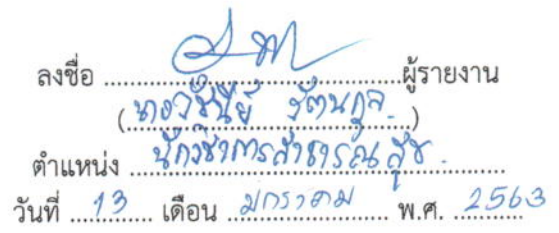 ลงชื่อ ........................ผู้รายงาน
(นางวัชนีย์ รัตนกุล)
ตำแหน่ง นักวิชาการสาธารณสุข
วันที่ 13 เดือน มกราคม พ.ศ. 2563